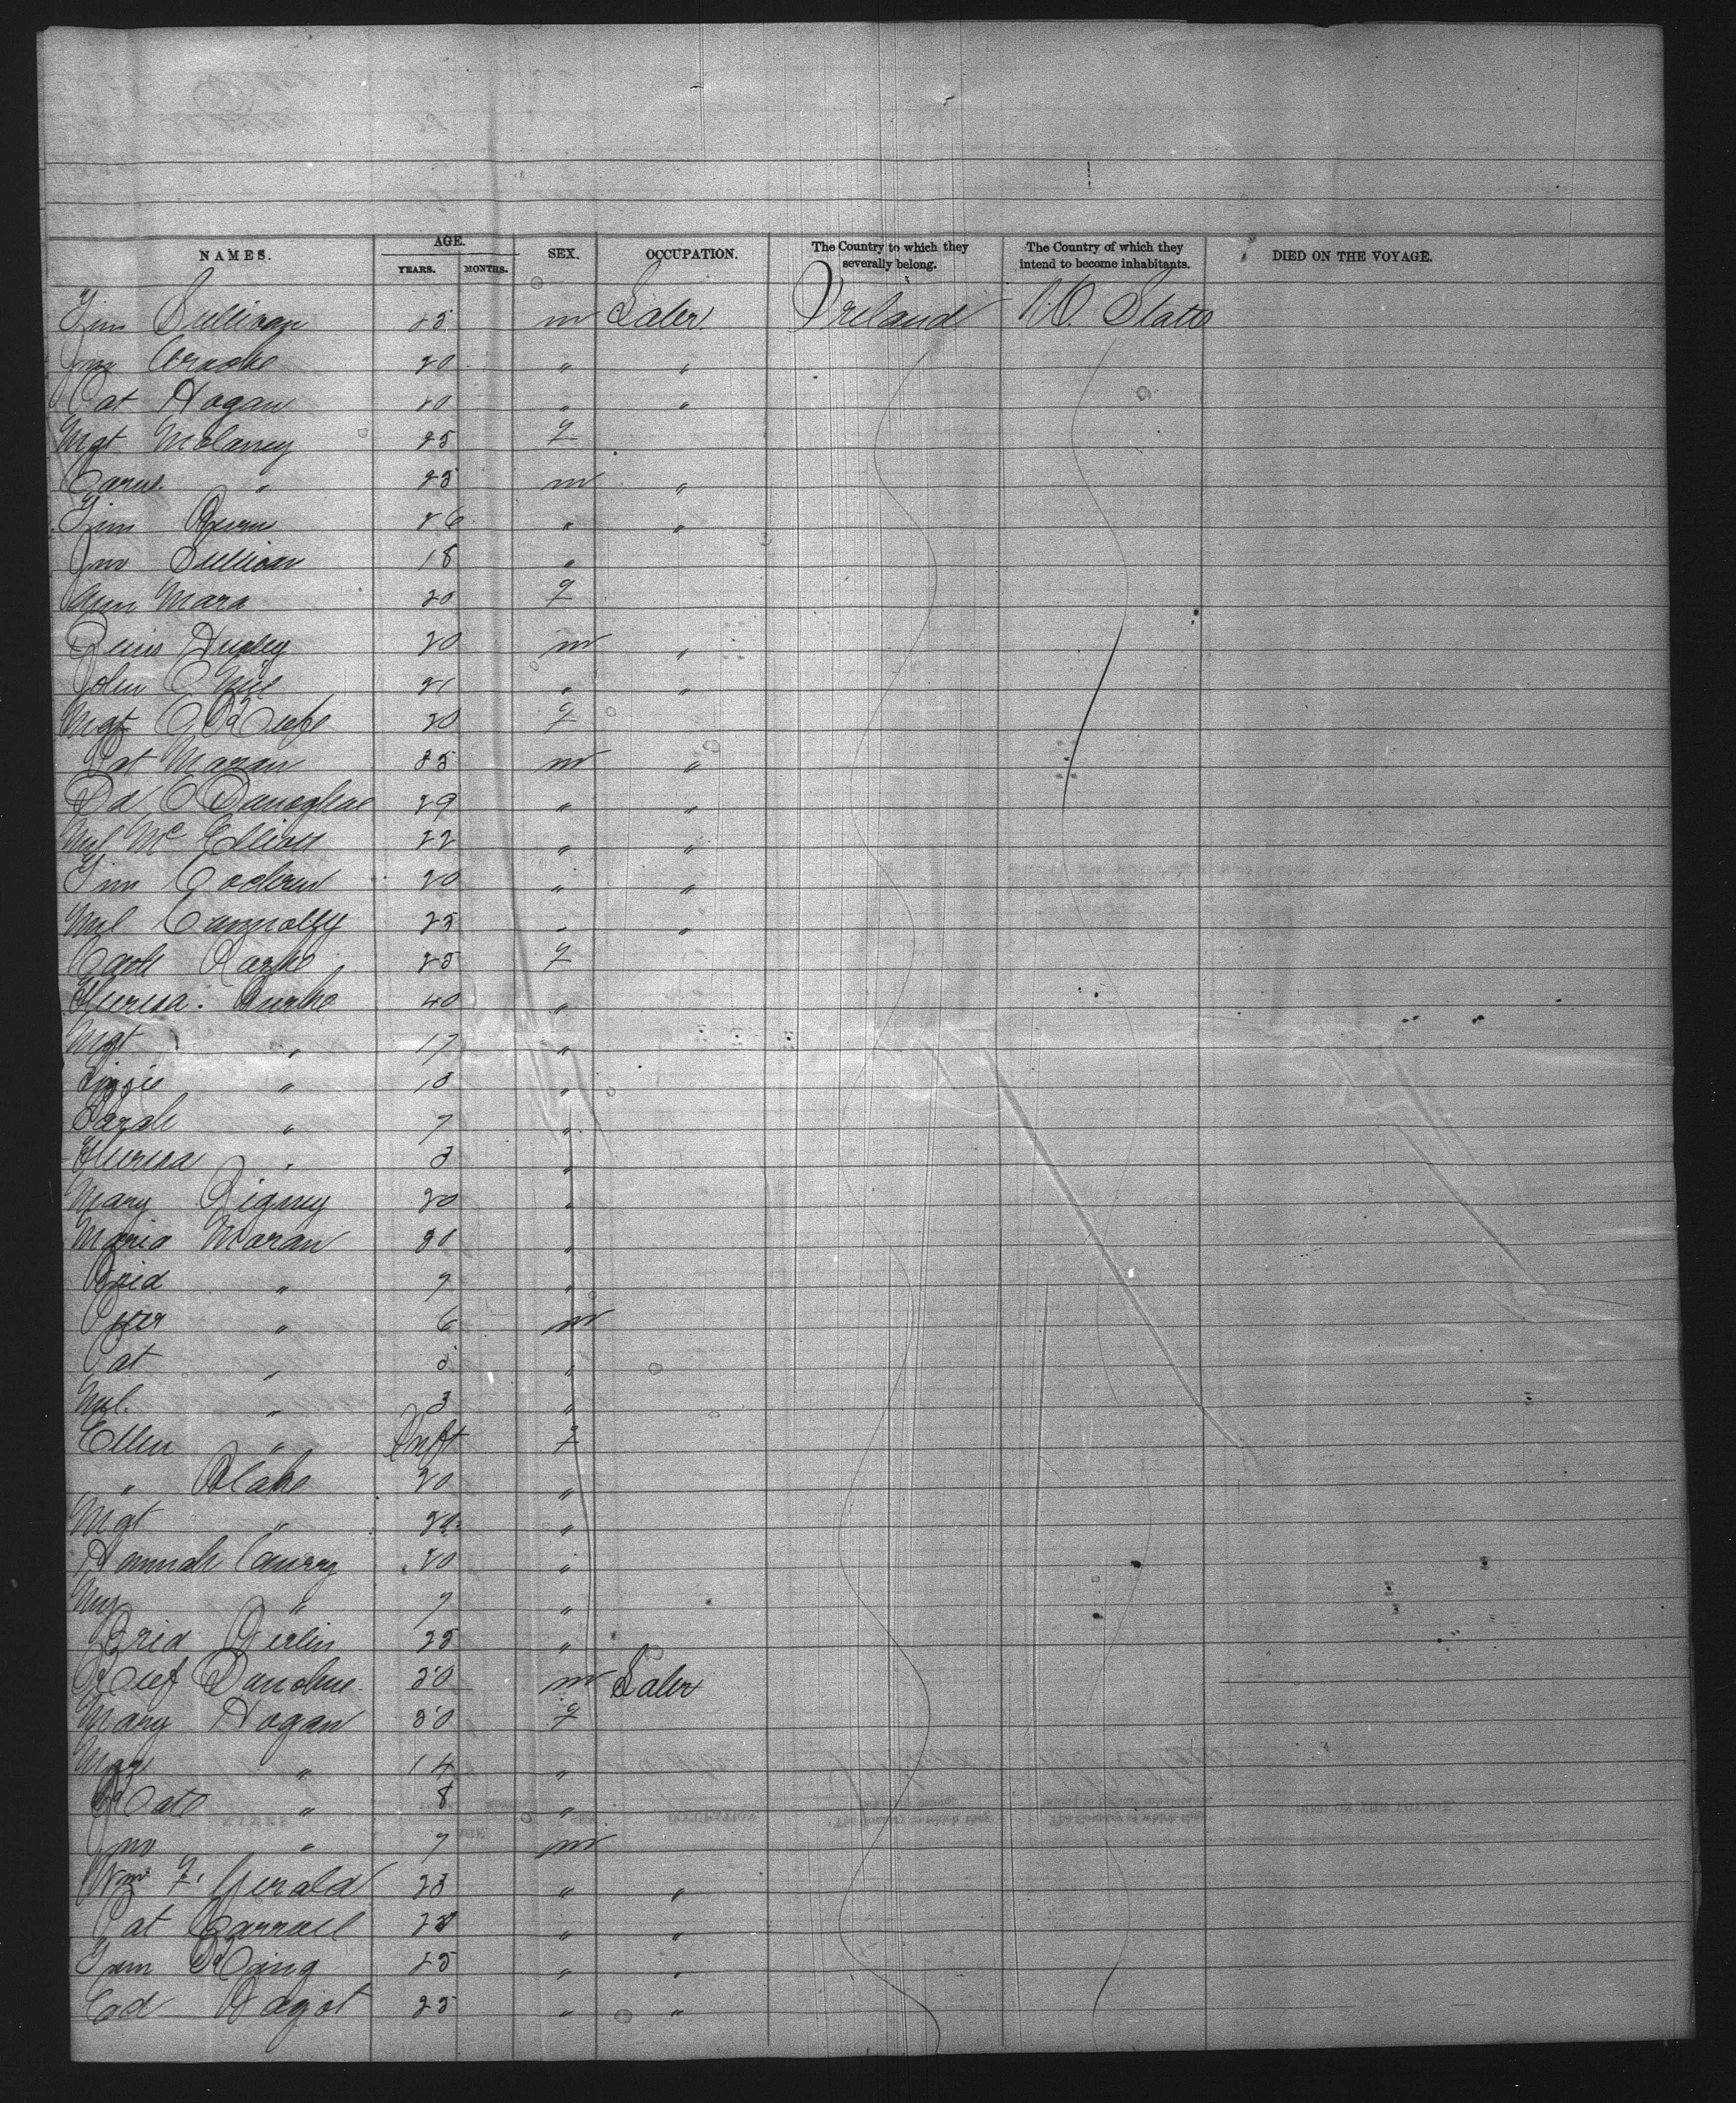 NAMES. AGE. YEARS. MONTHS. SEX. OCCUPATION. The Country to which they severally belong. The Country of which they intend to become inhabitants. DIED ON THE VOYAGE.
Tim Sullivan 25 m Laber Ireland U. States
Jno 20 " "
Pat Hogan 20 " "
Mgt Molaney 25 f
" 25 m "
Tim Burns 26 " "
Jno Sullivan 18 "
Ann Mara 20 f
Denis Hurley 20 m "
John O'Neil 21 " "
Mgt O'Keefe 20 f
Pat Moran 35 m "
Dd O'Donoghue 29 " "
Ml McElliott 22 " "
Tim 20 " "
Ml Connolly 25 " "
Cath 25 f
Theresa Burke 40 "
Mgt " 17 "
Lizzie " 10 "
Sarah " 7 "
Theresa " 3 "
Mary Rigney 20 "
Maria Moran 30 "
Brid " 7 "
Peter " 6 m
Pat " "
Ml. " 3 "
Ellen " Inft f
" Blake 20 "
Mgt " 20 "
Hannah Curry 20 "
My " 7 "
Brid 25 "
Keef Donohue 20 m Laber
Mary Hogan 30 f
" 14 "
Kate " 8 "
Jno " 7 m
Wm F. Gerald 23 " "
Pat Carroll " "
Tim King 25 " "
Ed 25 " "